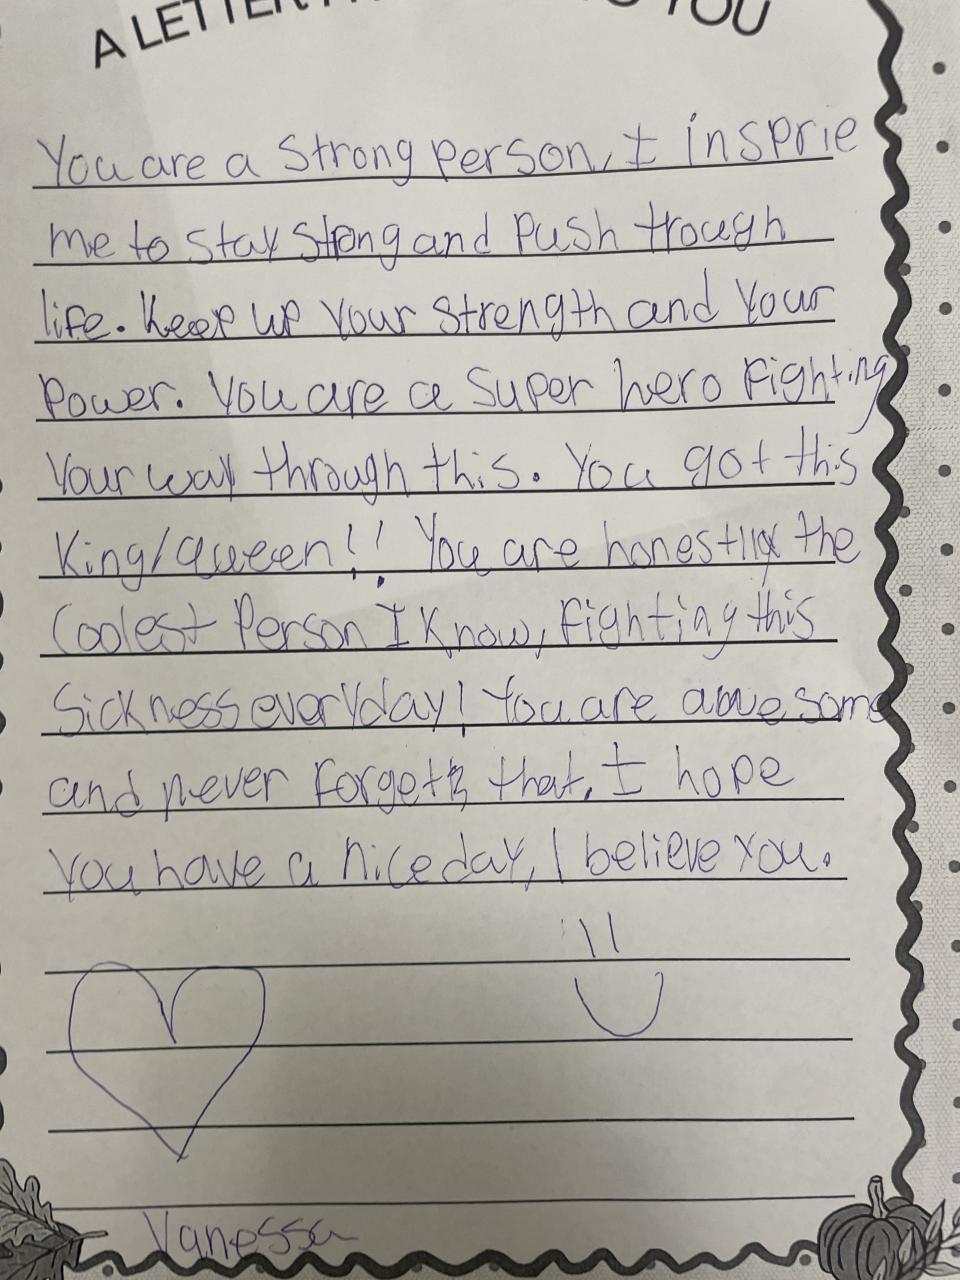 A LETTER TO YOU
You are a strong person, I insprie
me to stay strong and push trough
life. Keep up your strength and your
power. You are a super hero fighting
your way through this. You got this
King/Queen!! You are honestlly the
coolest person I know, fighting this
sickness everyday! You are awesome
and never forget that. I hope
you have a nice day, I believe you.
Vanessa